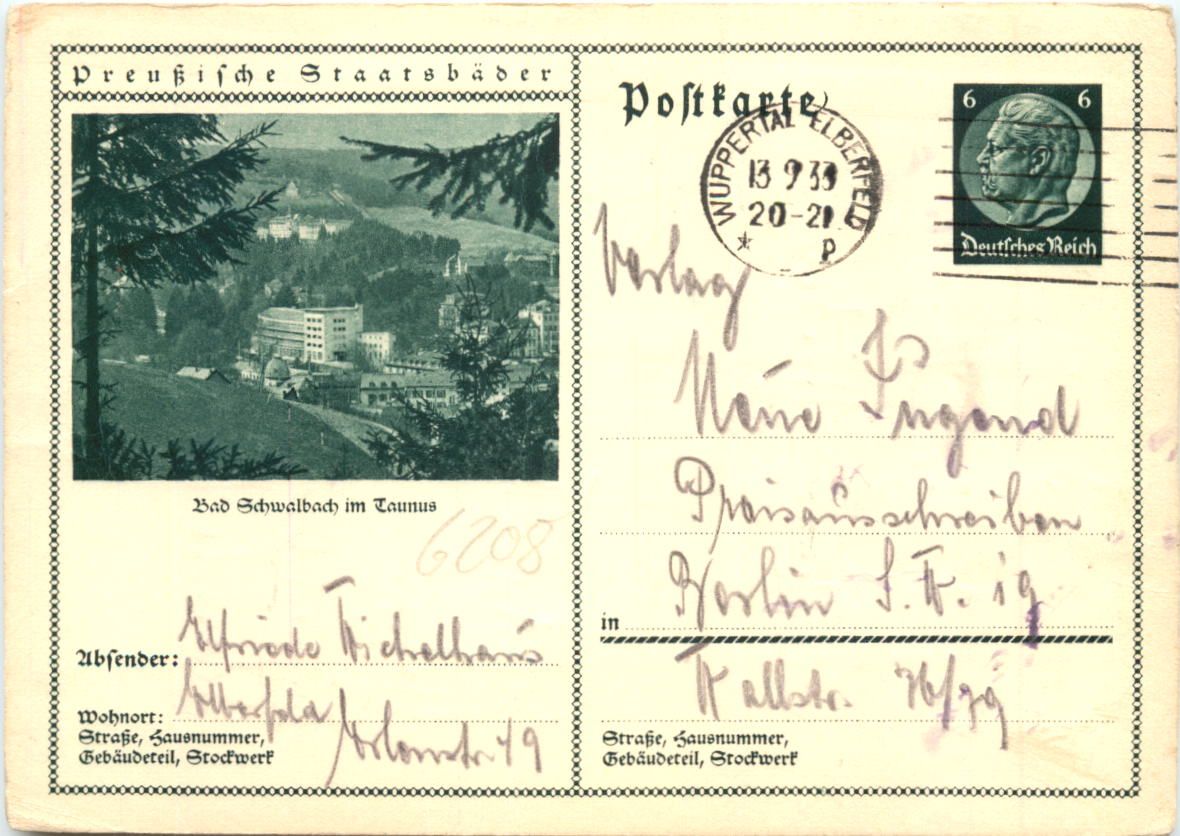 Preußische Staatsbäder
Bad Schwalbach im Taunus
6208
Absender: Elfriede Wichelhaus
Wohnort: Elberfeld
Straße, Hausnummer,
Gebäudeteil, Stockwerk
49
Postkarte
WUPPERTAL-ELBERFELD
13 9 33
20-21
* p
6 6
Deutsches Reich
Verlag
Neue Jugend
Preisausschreiben
in Berlin S.W. 19
Wallstr. 76/79
Straße, Hausnummer,
Gebäudeteil, Stockwerk